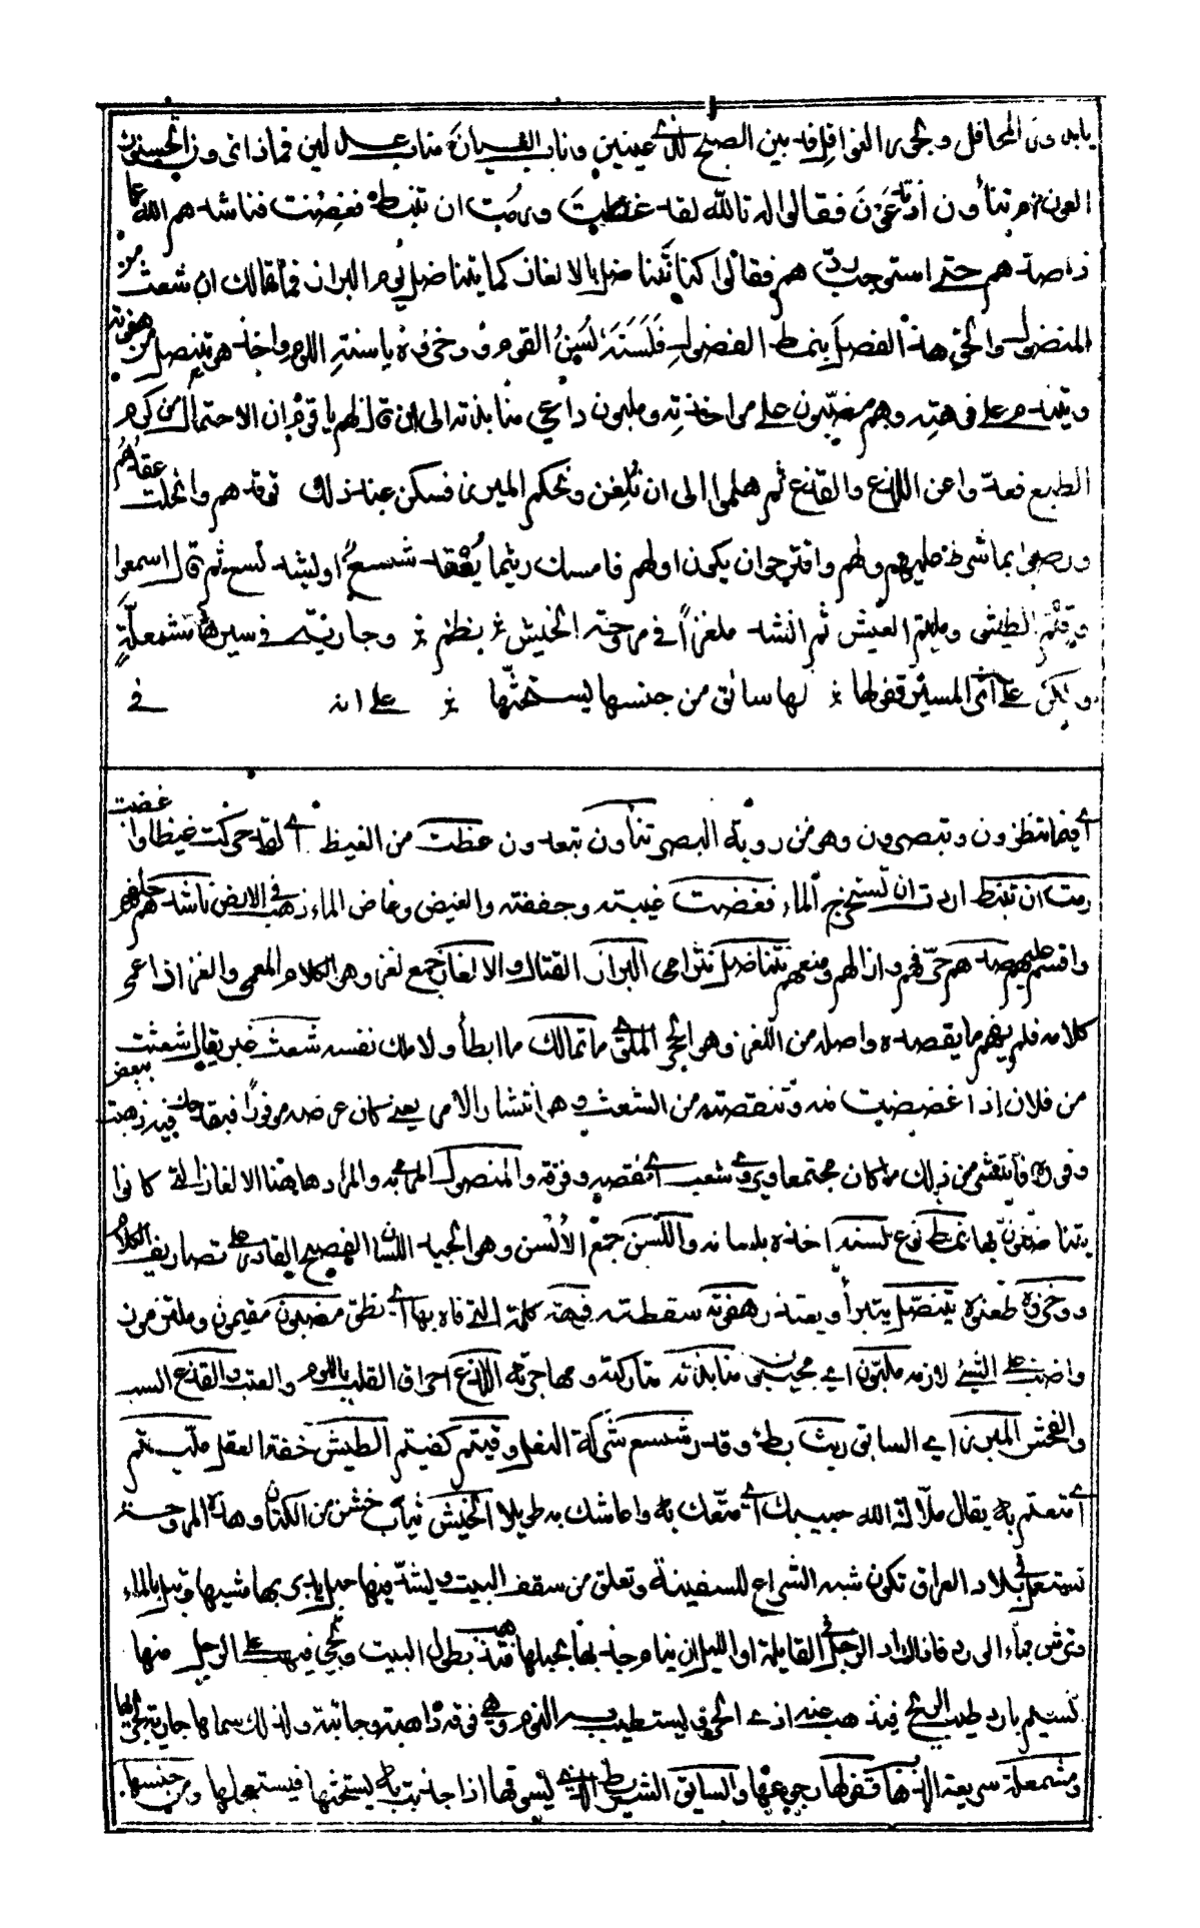 يابدور المحافل وبحور النوافل قد بين الصبح لذي عينين وناب العيان مناب عدلين فماذا ترون الحسنون
العون ام تنأون اذ تدعون فقالوا له تالله لقد غظت ورمت ان تنبط فغضت فناشدهم الله عما
ذا صدهم حتى استوجب ردهم فقالوا كنا نتناضل بالالغاز كما يتناضل يوم البراز فما تمالك ان شعث من
المنضول والحق هذا الفضل بنمط الفضول فلسنته لسن القوم ووخزوه باسنة اللوم واخذ هو يتنصل من هفوته
ويتندم على فوهته وهم مضبون على مواخذته وملبون داعي منابذته الى ان قال لهم يا قوم ان الاحتمال من كرم
الطبع فعدوا عن اللذع والقذع ثم هلموا الى ان نلغز ونحكم المبرز فسكن عند ذلك توقدهم وانحلت عقدهم
ورضوا بما شرط عليهم ولهم واقترحوا ان يكون اولهم فامسك ريثما يعقد شسع او يشد نسع ثم قال اسمعوا
وقيتم الطيش ومليتم العيش ثم انشد ملغزا في مروحة الخيش نظم وجارية في سيرها مشمعلة
ولكن على اثر المسير قفولها لها سائق من جنسها يستحثها على انه في
اي فيما تنظرون وتبصرون وهو من روية البصر تنأون تبعدون غظت من الغيظ اي لقد حركت غيظا وان غضت
رمت ان تنبط اردت ان تستخرج الماء فغضت غيبته وجففته والغيض وغاض الماء ذهب في الارض ناشدهم حلفهم
واقسم عليهم صدهم حرفهم وازالهم ومنعهم نتناضل نترامى البراز القتال والالغاز جمع لغز وهو الكلام المعمى والغز اذا عمى
كلامه فلم يفهم ما يقصده واصله من اللغز وهو الحجر الملتوي ما تمالك ما ابطأ ولا ملك نفسه شعث غبر يقال شعثت
من فلان اذا غضضت منه وتنقصته من الشعث وهو انتشار الامر يعني كان عرضه موفورا فبقدحك فيه ذهبت ببعض
وفوره فانتشر من ذلك ما كان مجتمعا ويروى شعب اي نقصه وفرقه والمنضول المرامى به والمراد هاهنا الالغاز التي كانوا
يتناضلون بها نمط نوع لسنته اخذه بلسانه واللسن جمع الالسن وهو الجيد اللسان الفصيح القادر على تصاريف الكلام
ووخزوه طعنوه يتنصل يتبرأ ويعتذر هفوته سقطته فوهته كلمته التي فاه بها اي نطق مضبون مقيمون وملتزمون
واضب على الشيء لازمه ملبون اي مجيبون منابذته متاركته ومهاجرته اللذع احراق القلب باللوم والعتب والقذع السب
والفحش المبرز اي السابق ريث بطؤ وقدر شسع شركة النعل وقيتم كفيتم الطيش خفة العقل مليتم
اي متعتم به يقال ملاك الله حبيبك اي متعك به واعاشك به طويلا الخيش ثياب خشن من الكتان وهذه المروحة
تستعمل في بلاد العراق تكون شبه الشراع للسفينة وتعلق من سقف البيت ويشد فيها حبل يدبر بها مشيها وتبل بالماء
وترش بماء الورد فاذا اراد الرجل في القايلة او الليل ان ينام جذبها بحبلها فتذهب بطول البيت وتجي فيهب على الرجل منها
نسيم بارد طيب الريح فيذهب عنه اذى الحر فيستطيب به النوم وهي فوقه ذاهبة وجائية ولذلك سماها جارية لجريها
ومشمعلة سريعة الذهاب قفولها رجوعها والسائق الشريط الذي يسوقها اذا جذبت به يستحثها فيستعجلها ومن جنسها